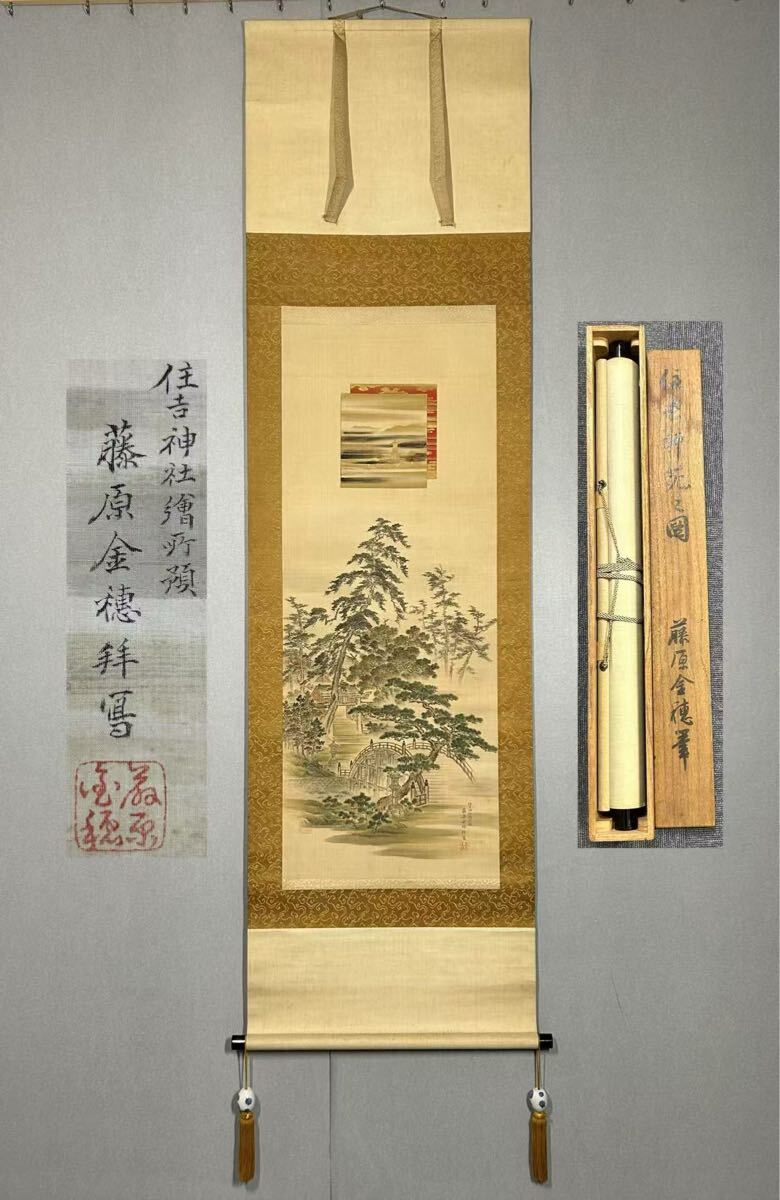 住吉神社繪所預
藤原金穂拝寫
藤原金穂
住吉神苑之圖
藤原金穂筆